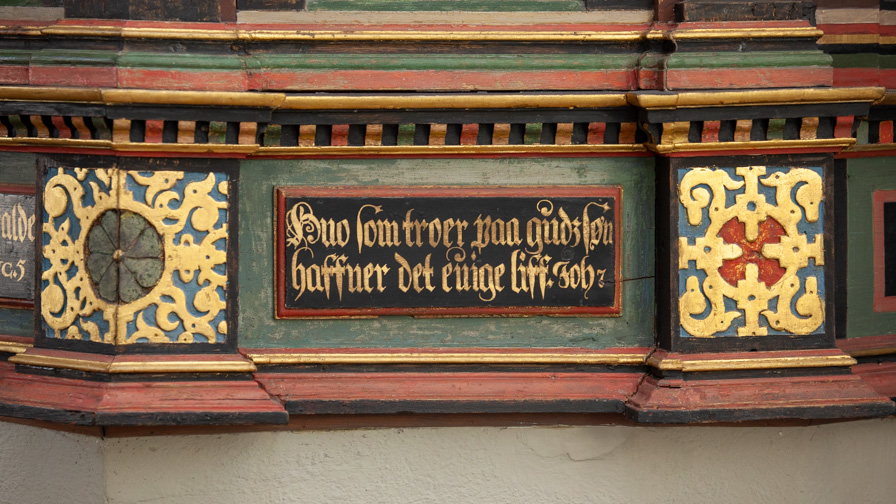 alde
cꝫ. 5
Huo som troer paa gudz søn
haffuer det euige liff. Joh